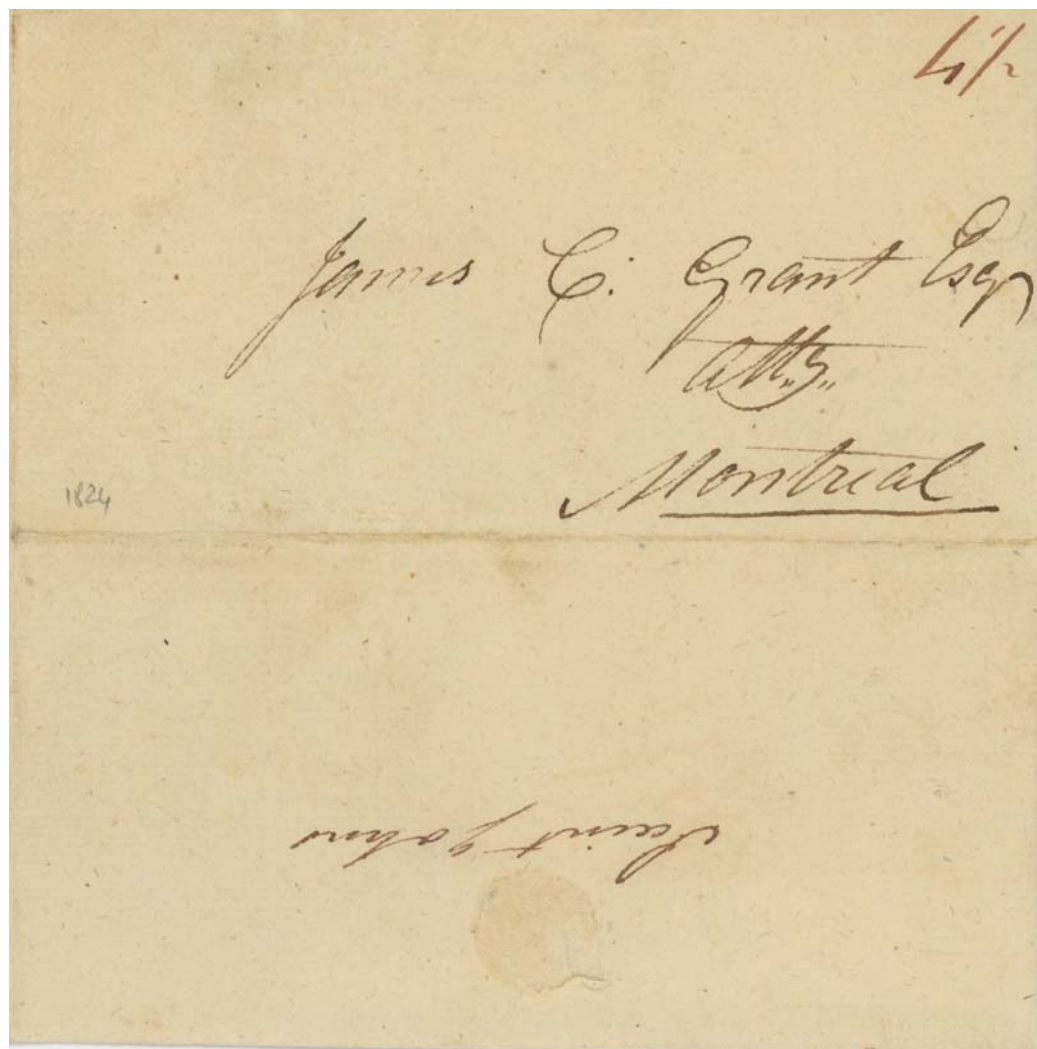 4 1/2
James C. Grant Esqr
Atty.
Montreal
1824
Saint Johns